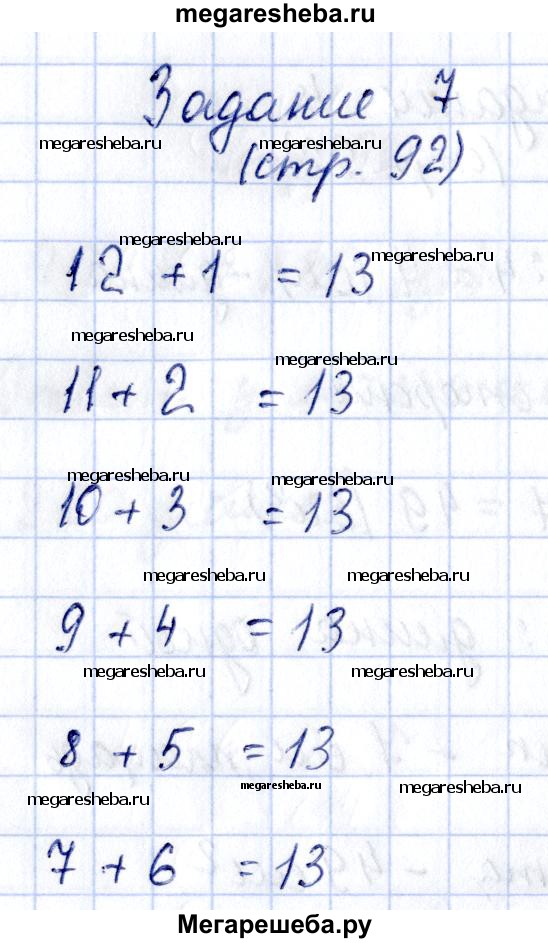 megaresheba.ru
Задание 7
megaresheba.ru megaresheba.ru
(стр. 92)
megaresheba.ru megaresheba.ru
12 + 1 = 13
megaresheba.ru megaresheba.ru
11 + 2 = 13
megaresheba.ru megaresheba.ru
10 + 3 = 13
megaresheba.ru megaresheba.ru
9 + 4 = 13
megaresheba.ru megaresheba.ru
8 + 5 = 13
megaresheba.ru megaresheba.ru megaresheba.ru
7 + 6 = 13
Мегарешеба.ру